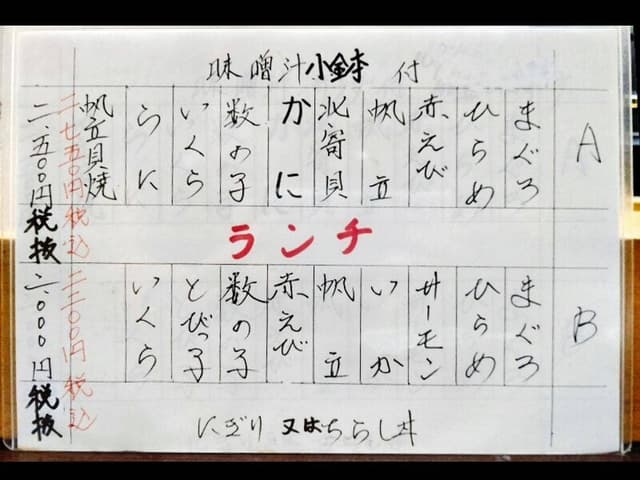 味噌汁小鉢付
A
まぐろ
ひらめ
赤えび
帆立
北寄貝
かに
数の子
いくら
うに
帆立貝焼
二、七五〇円税込
二、五〇〇円税抜
ランチ
B
まぐろ
ひらめ
サーモン
いか
帆立
赤えび
数の子
とびっ子
いくら
二、二〇〇円税込
二、〇〇〇円税抜
にぎり又はちらし丼